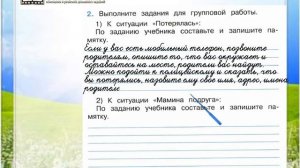 2. Выполните задания для групповой работы.
1) К ситуации «Потерялась»:
По заданию учебника составьте и запишите па-
мятку.
Если у вас есть мобильный телефон, позвоните
родителям, опишите то, что вас окружает и
оставайтесь на месте, родители вас найдут.
Можно подойти к полицейскому и сказать, что
вы потерялись, назовите ему своё имя, адрес, имена
родителей
2) К ситуации «Мамина подруга»:
По заданию учебника составьте и запишите па-
мятку.